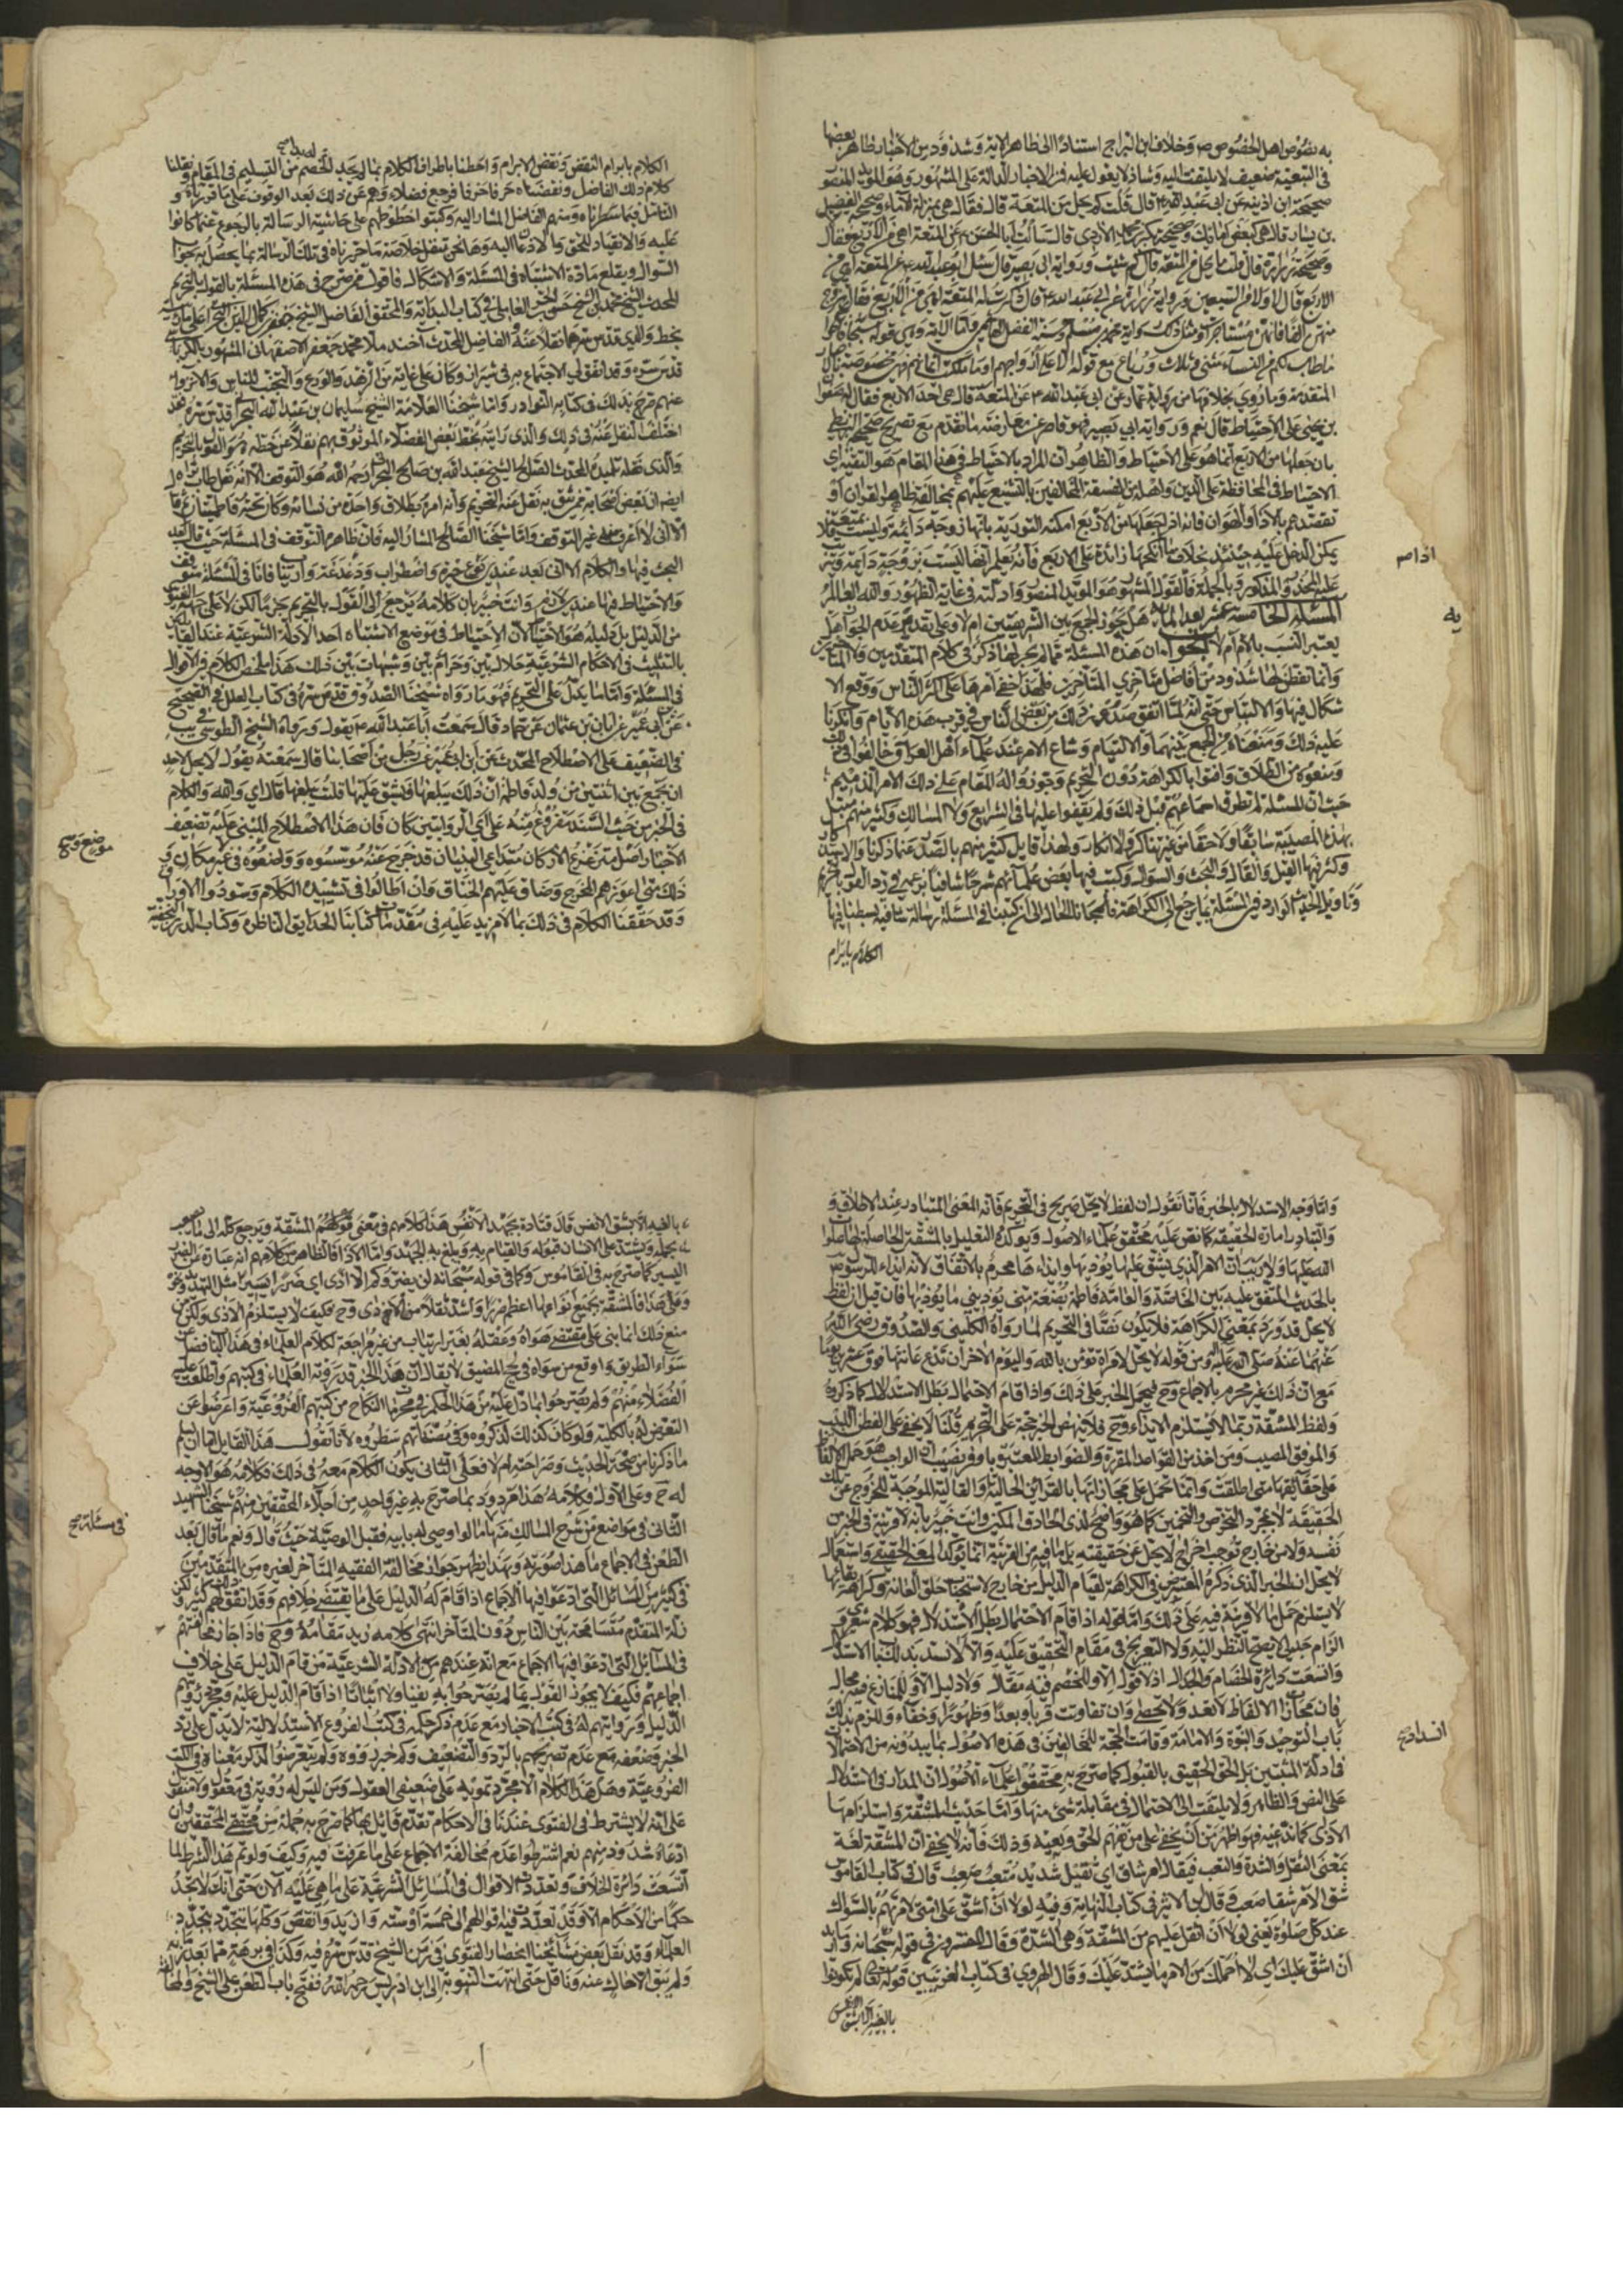 به نصوص اهل الخصوص ص وخلاف ابن البراج استنادا الى ظاهر الاية وشذوذ من الاخبار ظاهر بعضها
في التبعية ضعيف لا يلتفت اليه وشاذ لا يعول عليه فمن الاخبار الدالة على المشهور وهو المؤيد المنصور
صحيحة ابن اذينة عن ابي عبد الله ع قال قلت كم يحل من المتعة قال فقال هي بمنزلة الاماء وصحيحة الفضيل
بن يسار قال هي كبعض امائك وصحيحة بكر بن محمد الازدي قال سالت ابا الحسن ع عن المتعة اهي من الاربع فقال
وصحيحة زرارة قال قلت ما يحل من المتعة قال كم شئت ورواية ابي بصير قال سئل ابو عبد الله ع عن المتعة اهي من
الاربع قال لا ولا من السبعين ورواية زرارة عن ابي عبد الله ع قال ذكرت له المتعة اهي من الاربع فقال تزوج
منهن الفا فانهن مستاجرات ومثل ذلك رواية محمد بن مسلم
ما طاب لكم من النساء مثنى وثلاث ورباع مع قوله الا على ازواجهم او ما ملكت ايمانهم فهي مخصوصة
المتقدمة وما روي بخلافها من رواية عمار عن ابي عبد الله ع عن المتعة قال هي احد الاربع فقال له صفوان
بن يحيى على الاحتياط قال نعم ورواية ابي بصير فهو قاصر عن معارضة ما تقدم مع تصريح صحيحة البزنطي
بان جعلها من الاربع انما هو على الاحتياط والظاهر ان المراد بالاحتياط في هذا المقام هو التقية اي
الاحتياط في المحافظة على الدين واهله من الفسقة المخالفين بالتشنيع عليهم بمخالفة ظاهر القران او
تقصدهم بالاذا والهوان فانه اذا جعلها من الاربع امكنه التورية بانها زوجة دائمة وليست بمتعة فلا
يمكن الدخل عليه حينئذ بخلاف ما انكحها زائدة على الاربع فانه يعلم انها ليست بزوجة دائمة
على المحذور المذكور وبالجملة فالقول المشهور هو المؤيد المنصور وادلته في غاية الظهور والله العالم
المسئلة الخامسة عشر بعد المأة هل يجوز الجمع بين الشريفتين ام لا وعلى تقدير عدم الجواز هل
يعتبر النسب بالام ام لا الجواب ان هذه المسئلة مما لم يجر لها ذكر في كلام المتقدمين
وانما تفطن لها شذوذ من افاضل متاخري المتاخرين فلهذا خفي امرها على اكثر الناس ووقع الا
شكال فيها والالتباس حتى انه لما اتفق صدور ذلك من بعض الناس في قرب هذه الايام وانكرنا
عليه ذلك ومنعناه من الجمع بينهما والالتيام وشاع الامر عند علماء اهل العراق خالفوا في ذلك
ومنعوه من الطلاق وافتوا بالكراهة دون التحريم وجوزوا له المقام على ذلك الامر الذميم
حيث ان المسئلة لم تطرق اسماعهم قبل ذلك ولم يقفوا عليها في الشرايع ولا المسالك وكثير منهم مبتلى
بهذه المصيبة سابقا ولاحقا من غير تناكر ولا انكار ولهذا قابل كثير منهم بالصد عما ذكرنا
وكثر فيها القيل والقال والبحث والسؤال وكتب فيها بعض علمائهم شرحا شافيا بزعمه في رد القول بالتحريم
وتاويل الخبر الوارد في المسئلة بما يرجع الى الكراهة فالجانا الحال الى ان كتبنا في المسئلة رسالة شافية بسطنا فيها
الكلام بابرام
اذا ص
يه
الكلام بابرام النقض ونقض الابرام واحطنا باطراف الكلام بما لم يجد الخصم من التسليم في المقام ونقلنا
كلام ذلك الفاضل ونقضناه حرفا حرفا فرجع فضلاؤهم عن ذلك بعد الوقوف على ما قررناه و
التامل فيما سطرناه ومنهم الفاضل المشار اليه وكتبوا خطوطهم على حاشية الرسالة بالرجوع عما كانوا
عليه والانقياد للحق والاذعان اليه وها نحن ننقل خلاصة ما حررناه في تلك الرسالة بما يحصل به جواب
السؤال ويقلع مادة الاشتباه في المسئلة والاشكال فاقول ممن صرح في هذه المسئلة بالقول بالتحريم
المحدث الشيخ محمد بن الشيخ حسن الحر العاملي في كتاب البداية والمحقق الفاضل الشيخ جعفر بن كمال الدين البحراني على ما وجدته
بخط والدي قدس سرهما نقلا عنه والفاضل المحدث آخند ملا محمد جعفر الاصفهاني المشهور بالكرباسي
قدس سره وقد اتفق لي الاجتماع به في شيراز وكان على غاية من الزهد والورع والتجنب للناس والانزواء
عنهم صرح بذلك في كتابه النوادر واما شيخنا العلامة الشيخ سليمان بن عبد الله البحراني قدس سره فقد
اختلف النقل عنه في ذلك والذي رايته بخط بعض الفضلاء الموثوق بهم نقلا عن خطه هو القول بالتحريم
والذي نقله تلميذه المحدث الصالح الشيخ عبد الله بن صالح البحراني رحمه الله هو التوقف الا انه نقل
ايضا ان بعض اصحابه ممن يثق به نقل عنه التحريم وانه امره بطلاق واحدة من نسائه وكان تحته فاطميتان
الا اني لا اعرف منه غير التوقف واما شيخنا الصالح المشار اليه فان ظاهره التوقف في المسئلة حيث قال بعد
البحث فيها والكلام الا اني بعد عندي نوع حيرة واضطراب ودغدغة وارتياب فانا في المسئلة متوقف
والاحتياط فيها عندي لازم وانت خبير بان كلامه يرجع الى القول بالتحريم جزما لكن لا على جهة الفتوى
من الدليل بل دليله هو الاحتياط لان الاحتياط في موضع الاشتباه احد الادلة الشرعية عند القائلين
بالتثليث في الاحكام الشرعية حلال بين وحرام بين وشبهات بين ذلك هذا ملخص الكلام في الاقوال
في المسئلة واما ما يدل على التحريم فهو ما رواه شيخنا الصدوق قدس سره في كتاب العلل في الصحيح
عن ابي عمير عن ابان بن عثمان عن حماد قال سمعت ابا عبد الله ع يقول ورواه الشيخ الطوسي في يب
في الضعيف على الاصطلاح المحدث عن ابن ابي عمير عن رجل من اصحابنا قال سمعته يقول لا يحل لاحد
ان يجمع بين اثنتين من ولد فاطمة ان ذلك يبلغها فيشق عليها قلت يبلغها قال اي والله والكلام
في الخبر من حيث السند مفروغ منه على اي الروايتين كان فان هذا الاصطلاح المبني عليه تضعيف
الاخبار اصل متزعزع الاركان متداعي البنيان قد خرج عنه مؤسسوه وواضعوه في غير مكان
ذلك متى اعوزهم المخرج وضاق عليهم الخناق وان اطالوا في تشييده الكلام وسودوا الاوراق
وقد حققنا الكلام في ذلك بما لا مزيد عليه في مقدمات كتابنا الحدايق الناظرة وكتاب الدرر النجفية
موضع وسيجئ
واما وجه الاستدلال بالخبر فانا نقول ان لفظ لا يحل صريح في التحريم فانه المعنى المتبادر عند الاطلاق و
والتبادر امارة الحقيقة كما نص عليه محققو علماء الاصول ويؤكده التعليل بالمشقة الحاصلة لها صلوات
الله عليها ولا ريب ان الامر الذي يشق عليها يؤذيها وايذاءها محرم بالاتفاق لانه ايذاء للرسول ص
بالحديث المتفق عليه بين الخاصة والعامة فاطمة بضعة مني يؤذيني ما يؤذيها فان قيل ان لفظ
لا يحل قد ورد بمعنى الكراهة فلا يكون نصا في التحريم لما رواه الكليني والصدوق رضي الله
عنهما عنه صلى الله عليه واله من قوله لا يحل لامراة تؤمن بالله واليوم الاخر ان تدع عانتها فوق عشرين يوما
مع ان ذلك غير محرم بالاجماع وح فيحمل الخبر على ذلك واذا قام الاحتمال بطل الاستدلال كما ذكروه
ولفظ المشقة ربما لا يستلزم الايذاء وح فلا ينهض الخبر حجة على التحريم قلنا لا يخفى على الفطن اللبيب
والموفق المصيب ومن اخذ من القواعد المقررة والضوابط المعتبرة باوفر نصيب ان الواجب هو حمل الالفاظ
على حقائقها متى اطلقت وانما تحمل على مجازاتها بالقرائن الحالية والقالية الموجبة للخروج عن تلك
الحقيقة لا بمجرد التخرص والتخمين كما هو واضح لذي الحاذق المكين وانت خبير بانه لا قرينة في الخبر من
نفسه ولا من خارج توجب اخراج لا يحل عن حقيقته بل ما فيه من القرينة انما تؤكد المعنى الحقيقي واستعمال
لا يحل في الخبر الذي ذكره المعترض في الكراهة لقيام الدليل من خارج لاستحباب حلق العانة وكراهة بقائها
لا يستلزم حمل ما لا قرينة فيه على ذلك واما قوله اذا قام الاحتمال بطل الاستدلال فهو كلام شعري
الزام جدلي لا يصح النظر اليه ولا التعريج في مقام التحقيق عليه والا لانسد بذلك باب الاستدلال
واتسعت دائرة الخصام والجدال اذ لا قول الا وللخصم فيه مقال ولا دليل الا وللمنازع فيه مجال
فان مجازات الالفاظ لا تعد ولا تحصى وان تفاوتت قربا وبعدا وظهورا وخفاء ويلزم بذلك
باب التوحيد والنبوة والامامة وقامت الحجة للمخالفين في هذه الاصول بما يبدونه من الاحتمالات
في ادلة المثبتين بل الحق الحقيق بالقبول كما صرح به محققو علماء الاصول ان المدار في الاستدلال
على النص والظاهر ولا يلتفت الى الاحتمال في مقابلة شئ منها واما حديث المشقة واستلزامها
الاذى كما ندعيه فهو اظهر من ان يخفى على من يفهم الحق ويعيه وذلك فانه لا يخفى ان المشقة لغة
بمعنى الثقل والشدة والتعب فيقال امر شاق اي ثقيل شديد متعب صعب قال في كتاب القاموس
شق الامر شقا صعب وقال ابن الاثير في كتاب النهاية وفيه لولا ان اشق على امتي لامرتهم بالسواك
عند كل صلوة يعني لولا ان اثقل عليهم من المشقة وهي الشدة وقال المفسرون في قوله سبحانه وما اريد
ان اشق عليك اي لا احملك من الامر ما يشتد عليك وقال الهروي في كتاب الغريبين قوله تعالى لم تكونوا
بالغيه الا بشق الانفس
انسداد
بالغيه الا بشق الانفس قال قتادة بجهد الانفس هذا كلامهم في معنى قولهم المشقة ويرجع كله الى ما يصعب
تحمله ويشتد على الانسان قبوله والقيام به ويبلغ به الجهد واما الاذى فالظاهر من كلامهم انه عبارة عن الضرر
اليسير كما صرح به في القاموس وكما في قوله سبحانه لن يضروكم الا اذى اي ضررا يسيرا
وعلى هذا فالمشقة بجميع انواعها اعظم ضررا واشد ثقلا من الاذى وح فكيف لا يستلزم الاذى ولكن من
منع ذلك انما بنى على مقتضى هواه وعقله بغير ارتياب من غير مراجعة لكلام العلماء في هذا الباب فضل عن
سواء الطريق واوقع من سواه في لجج المضيق لا يقال ان هذا الخبر قد روته العلماء في كتبهم واطلعت عليه
الفضلاء منهم ولم يصرحوا بما دل عليه من هذا الحكم في محرمات النكاح من كتبهم الفروعية واعرضوا عن
التعرض له بالكلية ولو كان كذلك لذكروه وفي مصنفاتهم سطروه لانا نقول هذا القايل اما ان يسلم
ما ذكرنا من صحة الحديث وصراحته ام لا فعلى الثاني يكون الكلام معه في ذلك وكلامه هو الاوجه
له ح وعلى الاول فكلامه هذا مردود بما صرح به غير واحد من اجلاء المحققين منهم شيخنا الشهيد
الثاني في مواضع من شرح المسالك منها ما لو اوصى له بابيه فقبل الوصية حيث قال ونعم ما قال بعد
الطعن في الاجماع ما هذا صورته وبهذا يظهر جواز مخالفة الفقيه المتاخر لغيره من المتقدمين
في كثير من المسائل التي ادعوا فيها الاجماع اذا قام له الدليل على ما يقتضي خلافهم وقد اتفق لهم ذلك كثيرا ولكن
زلة المتقدم متسامحة بين الناس دون المتاخر انتهى كلامه زيد مقامه وح فاذا جاز مخالفتهم
في المسائل التي ادعوا فيها الاجماع مع انه عندهم من الادلة الشرعية متى قام الدليل على خلاف
اجماعهم فكيف لا يجوز القول بما لم يصرحوا به نفيا ولا اثباتا اذا قام الدليل عليه
الدليل وروايتهم له في كتب الاخبار مع عدم ذكر حكمه في كتب الفروع الاستدلالية لا يدل على رد
الخبر وضعفه مع عدم تصريحهم بالرد والتضعيف وكم خبر رووه ولم يتعرضوا لذكر معناه في الكتب
الفروعية وهل هذا الكلام الا مجرد تمويه على ضعيفي العقول ومن ليس له روية في معقول ولا منقول
على انه لا يشترط في الفتوى عندنا في الاحكام تقدم قائل بها كما صرح به جملة من محققي المحققين وان
ادعاه شذوذ منهم نعم اشترطوا عدم مخالفة الاجماع على ما عرفت فيه وكيف ولو تم هذا الشرط لما
اتسعت دائرة الخلاف وتعددت الاقوال في المسائل الشرعية على ما هي عليه الان حتى انك لا تجد
حكما من الاحكام الا وقد تعددت فيه اقوالهم الى خمسة او ستة وازيد وانقص وكلها تتجدد بتجدد
العلماء وقد نقل بعض مشايخنا انحصار الفتوى في زمن الشيخ قدس سره فيه وكذا في برهة مما بعد زمانه
ولم يبق الا حاك عنه وناقل حتى انتهت النوبة الى ابن ادريس رحمه الله ففتح باب الطعن على الشيخ
في مسئلة صح